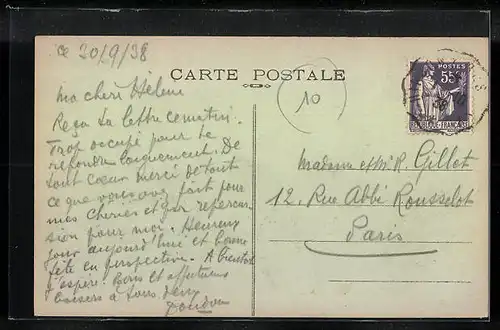 ce 30/9/38
CARTE POSTALE
10
POSTES
55c
REPUBLIQUE FRANÇAISE
Ma cheri Hélène
Reçu ta lettre ce matin.
Trop occupé pour te
repondre longuement. De
tout coeur merci de tout
ce que vous avez fait pour
mes cheries et par repercus
sion pour moi. Heureux
jour aujourd'hui et bonne
fête en perspective. A bientot
j'espère. Bons et affectueux
baisers à tous deux
Madame et Mr R. Gillet
12, Rue Abbé Rousselot
Paris